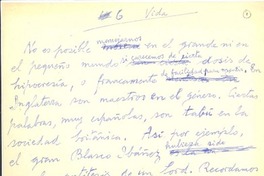 6 Vida
1
No es posible movernos en el grande ni en
el pequeño mundo si carecemos de cierta dosis de
hipocresía, o francamente de En
Inglaterra son maestros en el género. Ciertas
palabras, muy españolas, son tabú en la
sociedad británica. Así por ejemplo,
el gran Blasco Ibáñez hubiera sido
de un lord. Recordamos